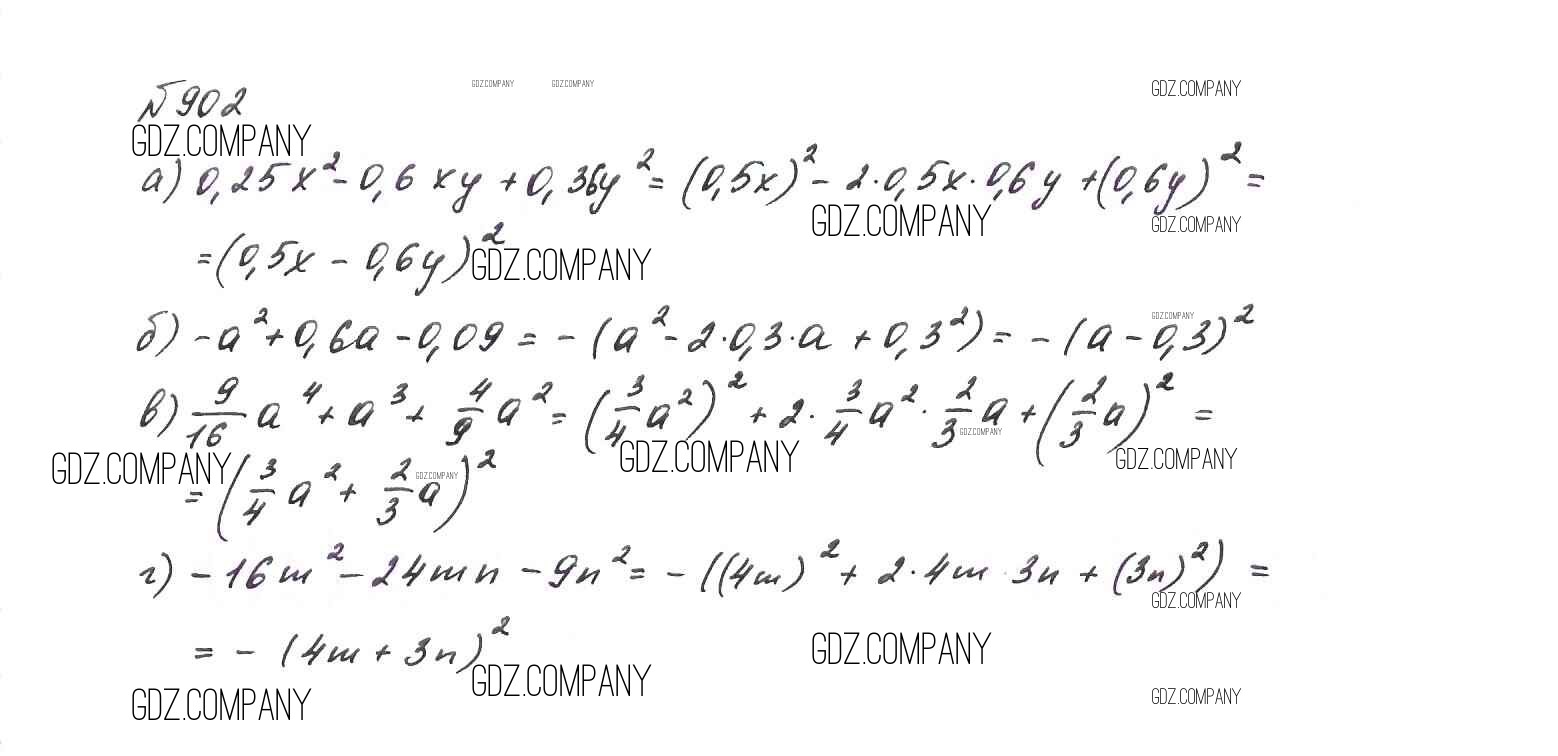 № 902
GDZ.COMPANY GDZ.COMPANY GDZ.COMPANY
GDZ.COMPANY
а) 0,25x² - 0,6xy + 0,36y² = (0,5x)² - 2·0,5x·0,6y + (0,6y)² =
GDZ.COMPANY GDZ.COMPANY
= (0,5x - 0,6y)²
GDZ.COMPANY
GDZ.COMPANY
б) -a² + 0,6a - 0,09 = - (a² - 2·0,3·a + 0,3²) = - (a - 0,3)²
в) 9/16 a⁴ + a³ + 4/9 a² = (3/4 a²)² + 2· 3/4 a² · 2/3 a + (2/3 a)² =
GDZ.COMPANY
GDZ.COMPANY GDZ.COMPANY GDZ.COMPANY
GDZ.COMPANY
= (3/4 a² + 2/3 a)²
г) - 16m² - 24mn - 9n² = - ((4m)² + 2·4m·3n + (3n)²) =
GDZ.COMPANY
= - (4m + 3n)²
GDZ.COMPANY
GDZ.COMPANY
GDZ.COMPANY GDZ.COMPANY